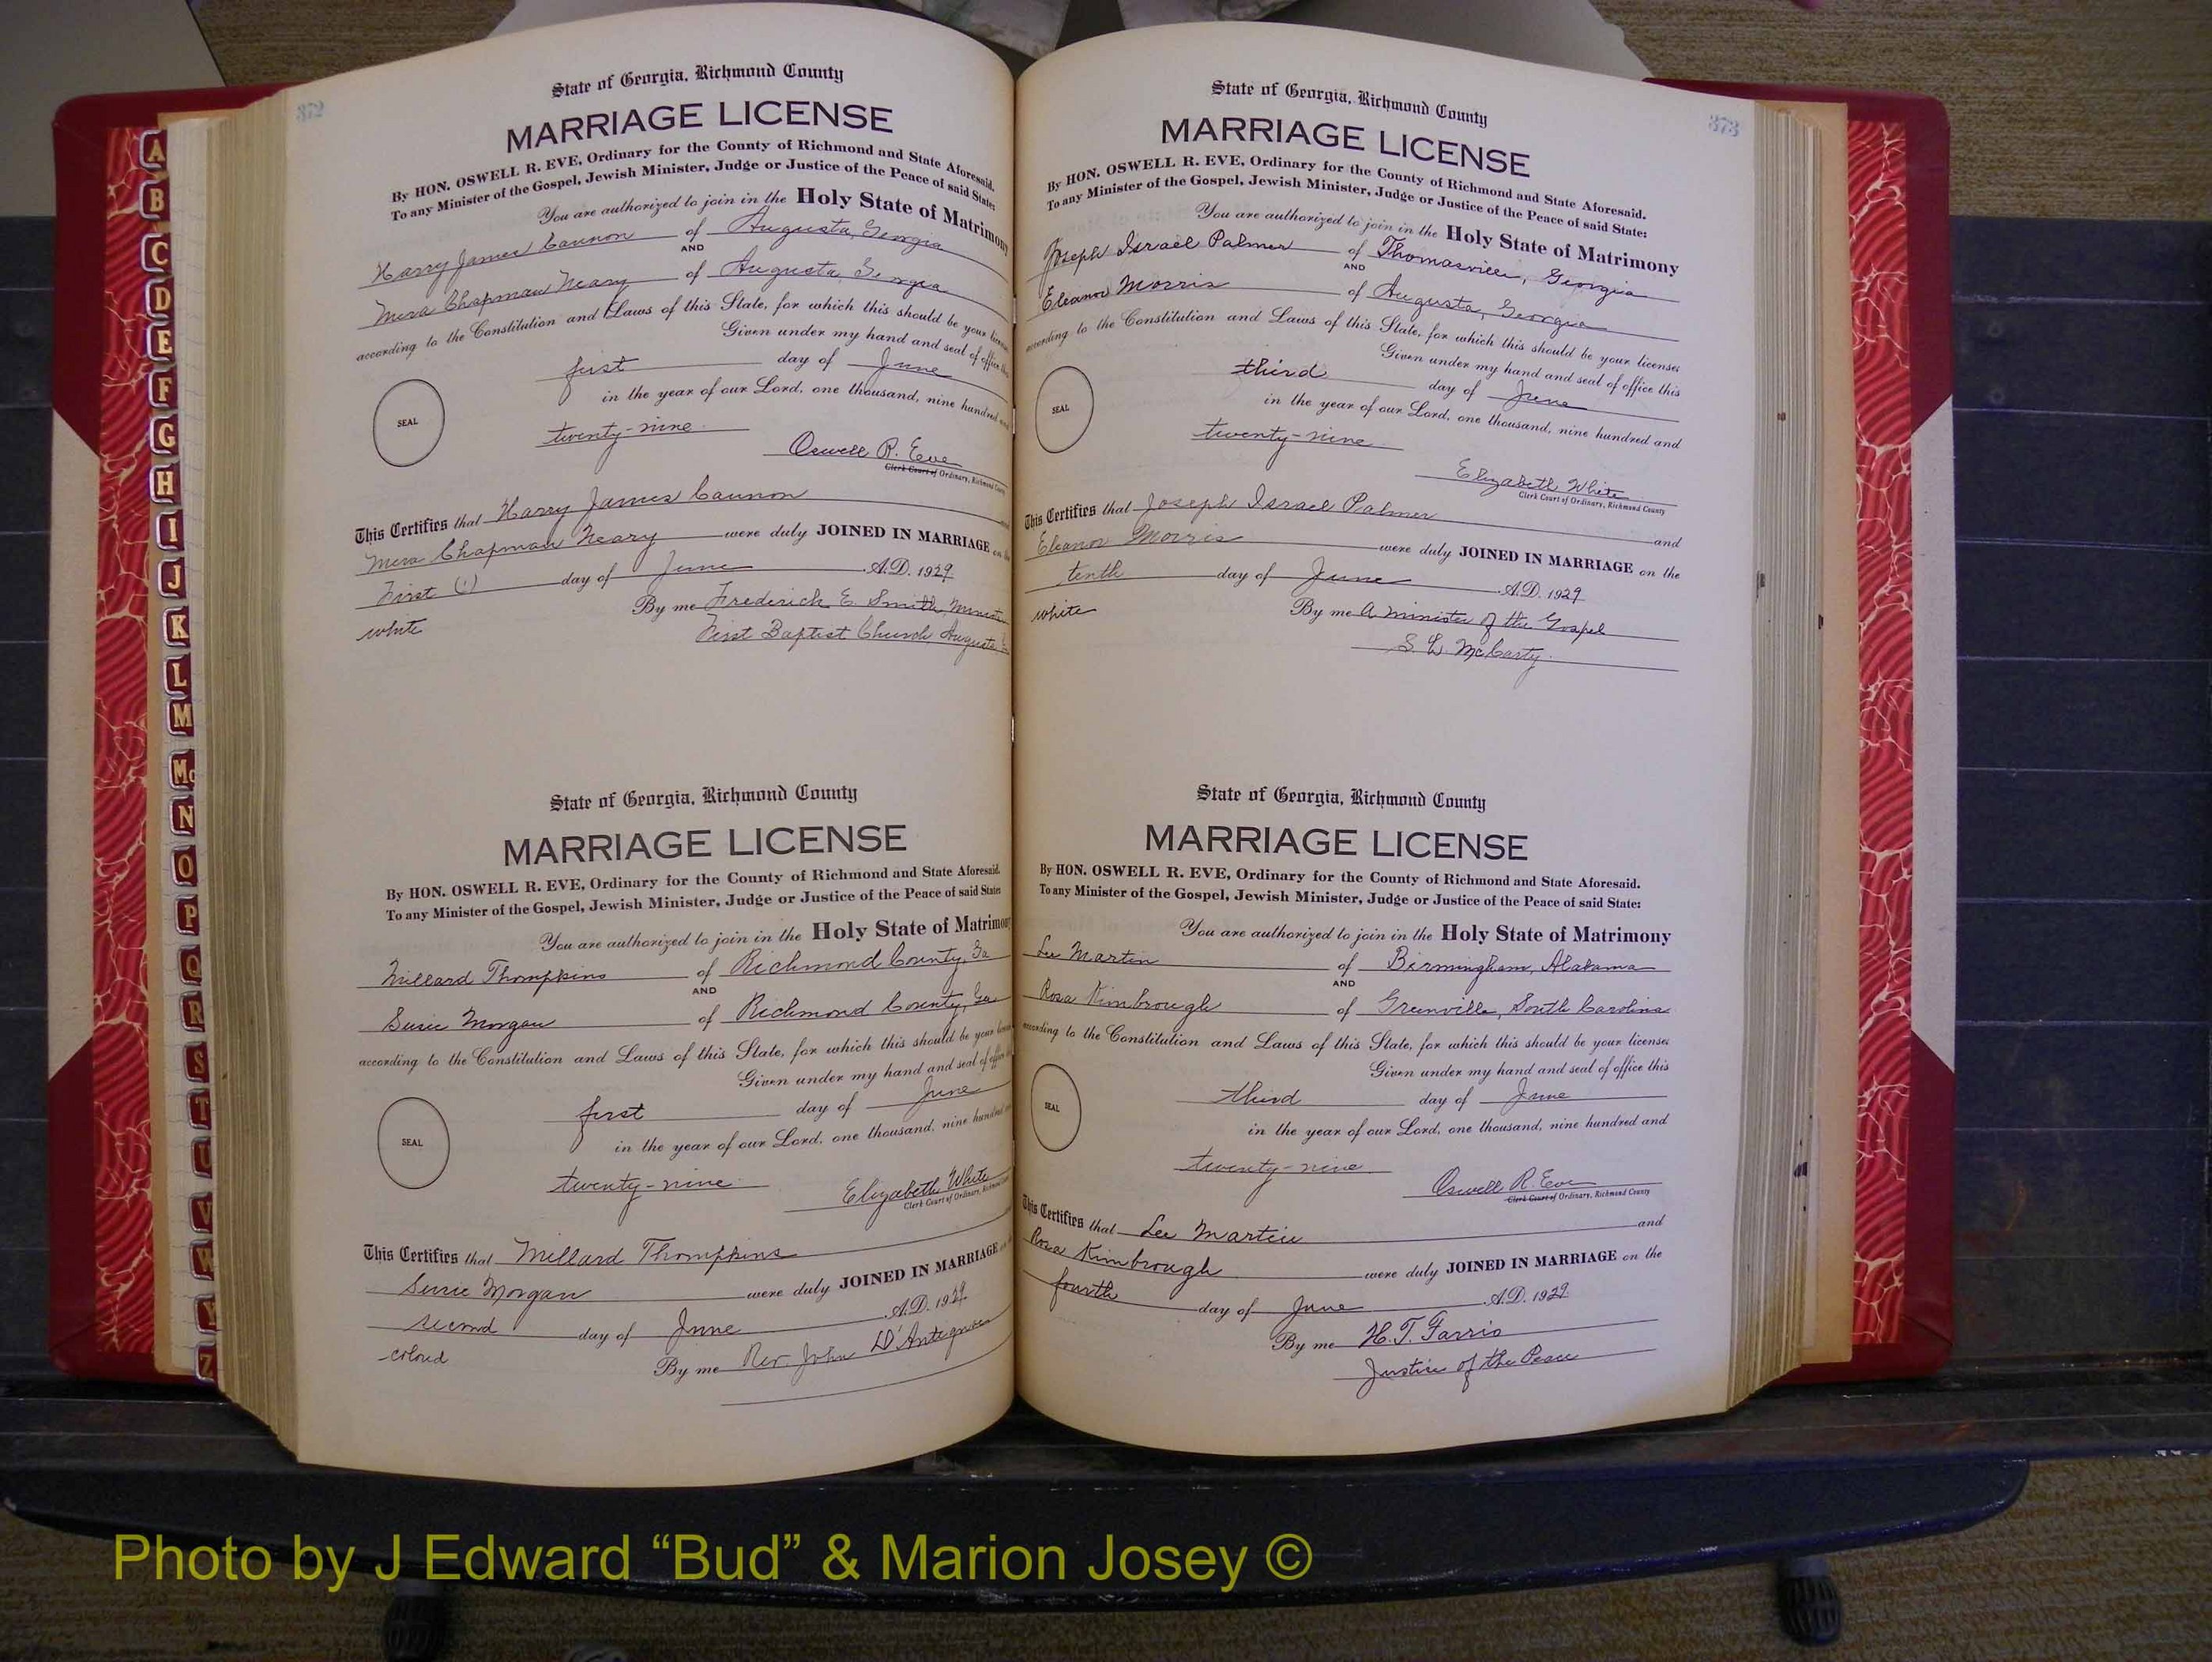 372
State of Georgia, Richmond County
MARRIAGE LICENSE
By HON. OSWELL R. EVE, Ordinary for the County of Richmond and State Aforesaid.
To any Minister of the Gospel, Jewish Minister, Judge or Justice of the Peace of said State:
You are authorized to join in the Holy State of Matrimony
Harry James Cannon of Augusta, Georgia
AND
Mira Chapman Neary of Augusta, Georgia
according to the Constitution and Laws of this State, for which this should be your licens
Given under my hand and seal of office this
first day of June
in the year of our Lord, one thousand, nine hundred and
SEAL
twenty-nine
Oswell R. Eve
Clerk Court of Ordinary, Richmond County
This Certifies that Harry James Cannon and
Mira Chapman Neary were duly JOINED IN MARRIAGE on the
First (1) day of June A.D. 1929
white By me Frederick E. Smith, Minister
First Baptist Church, Augusta, G
State of Georgia, Richmond County
MARRIAGE LICENSE
By HON. OSWELL R. EVE, Ordinary for the County of Richmond and State Aforesaid.
To any Minister of the Gospel, Jewish Minister, Judge or Justice of the Peace of said State:
You are authorized to join in the Holy State of Matrimony
Millard Thompkins of Richmond County, Ga
AND
Susie Morgan of Richmond County, Ga
according to the Constitution and Laws of this State, for which this should be your licens
Given under my hand and seal of office
first day of June
in the year of our Lord, one thousand, nine hundred
SEAL
twenty-nine
Elizabeth White
Clerk Court of Ordinary, Richmond
This Certifies that Millard Thompkins
Susie Morgan were duly JOINED IN MARRIAGE on
second day of June A.D. 1929
colored By me Rev. John D'Antignac
373
State of Georgia, Richmond County
MARRIAGE LICENSE
By HON. OSWELL R. EVE, Ordinary for the County of Richmond and State Aforesaid.
To any Minister of the Gospel, Jewish Minister, Judge or Justice of the Peace of said State:
You are authorized to join in the Holy State of Matrimony
Joseph Israel Palmer of Thomasville, Georgia
AND
Eleanor Morris of Augusta, Georgia
according to the Constitution and Laws of this State, for which this should be your licenses
Given under my hand and seal of office this
third day of June
in the year of our Lord, one thousand, nine hundred and
SEAL
twenty-nine
Elizabeth White
Clerk Court of Ordinary, Richmond County
This Certifies that Joseph Israel Palmer and
Eleanor Morris were duly JOINED IN MARRIAGE on the
tenth day of June A.D. 1929
white By me A minister of the Gospel
S. L. McCarty.
State of Georgia, Richmond County
MARRIAGE LICENSE
By HON. OSWELL R. EVE, Ordinary for the County of Richmond and State Aforesaid.
To any Minister of the Gospel, Jewish Minister, Judge or Justice of the Peace of said State:
You are authorized to join in the Holy State of Matrimony
Lee Martin of Birmingham, Alabama
AND
Rosa Kimbrough of Greenville, South Carolina
according to the Constitution and Laws of this State, for which this should be your licenses
Given under my hand and seal of office this
third day of June
in the year of our Lord, one thousand, nine hundred and
SEAL
twenty-nine
Oswell R. Eve
Clerk Court of Ordinary, Richmond County
This Certifies that Lee Martin and
Rosa Kimbrough were duly JOINED IN MARRIAGE on the
fourth day of June A.D. 1929
By me H. T. Farris
Justice of the Peace
A
B
C
D
E
F
G
H
I
J
K
L
M
Mc
N
O
P
Q
R
S
T
U
V
W
Y
Z
Photo by J Edward “Bud” & Marion Josey ©